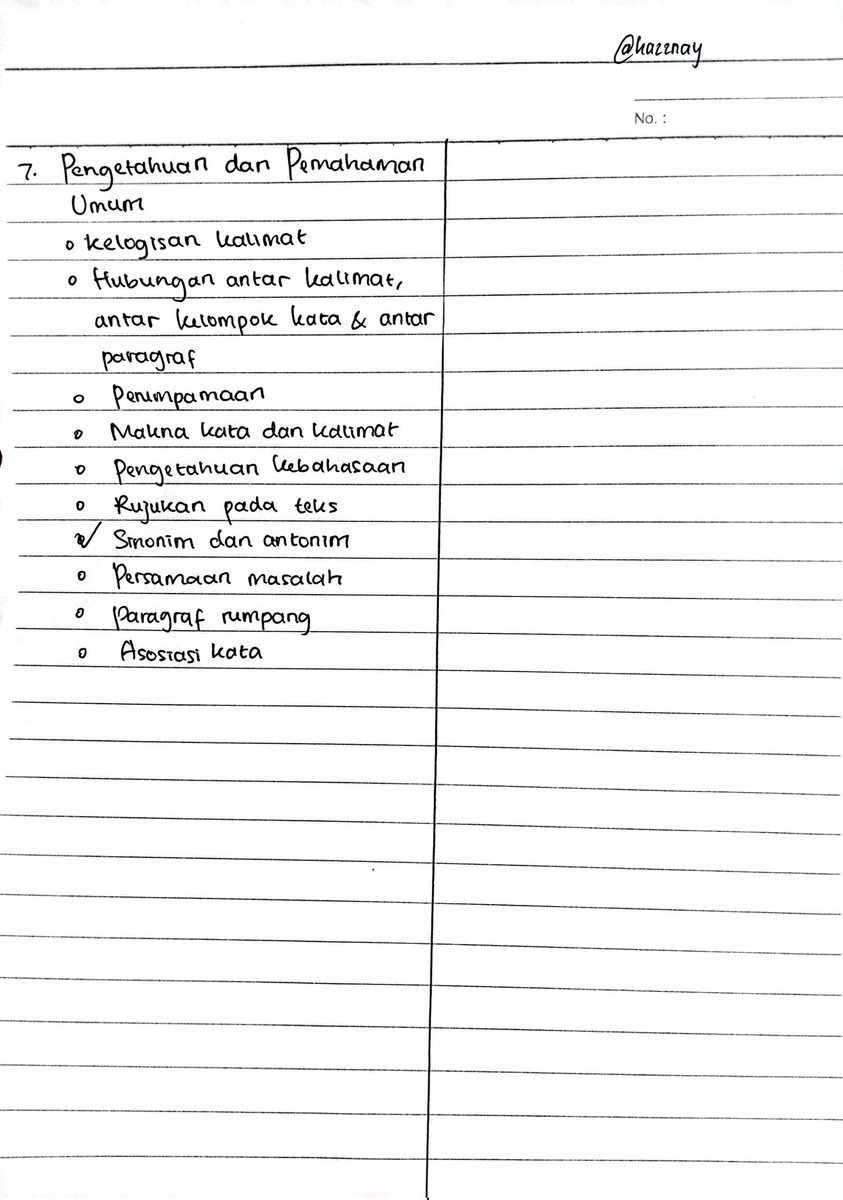 @hazznay
No. :
7. Pengetahuan dan Pemahaman
Umum
o kelogisan kalimat
o Hubungan antar kalimat,
antar kelompok kata & antar
paragraf
o Perumpamaan
o Makna kata dan kalimat
o Pengetahuan kebahasaan
o Rujukan pada teks
✓ Sinonim dan antonim
o Persamaan masalah
o Paragraf rumpang
o Asosiasi kata